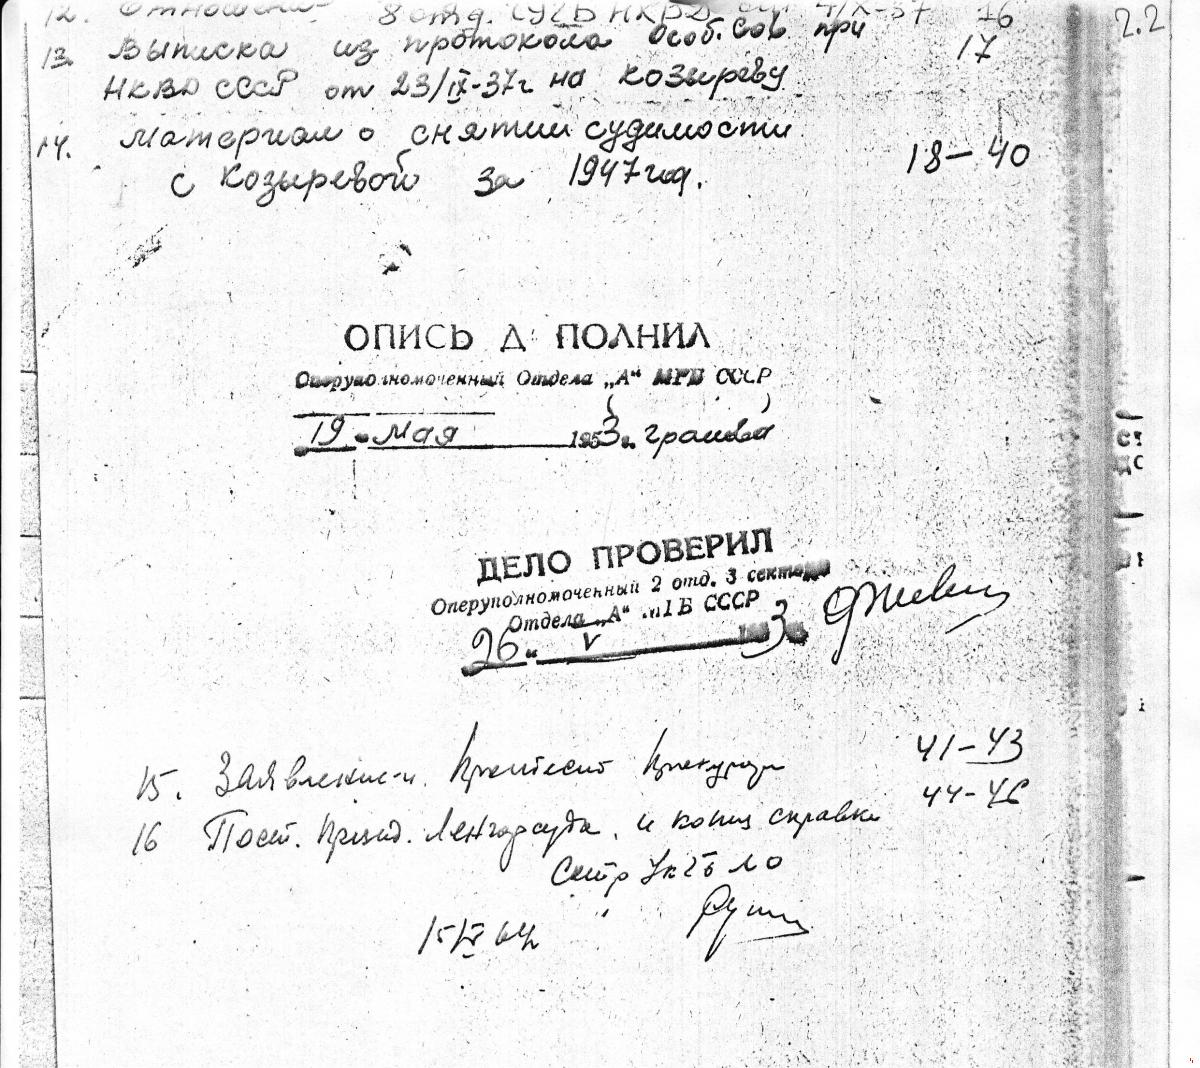 12. Отношени- 8 отд. СУГБ НКВД 4/X-37 16
2.2
13. Выписка из протокола Особ. Сов. при 17
НКВД СССР от 23/IX-37г. на Козыреву
14. Материал о снятии судимости
с Козыревой за 1947 год. 18-40
ОПИСЬ Д ПОЛНИЛ
Оперуполномоченный Отдела „А“ МГБ СССР
19 " мая 1953 г.
ДЕЛО ПРОВЕРИЛ
Оперуполномоченный 2 отд. 3 сектора
Отдела „А“ МГБ СССР
26 " V 3
15. Заявление-и. Протест Прокурора 41-43
16 Пост. Презид. Ленгорсуда, и копия справки 44-46
УКГБ ЛО
15/IX 64г